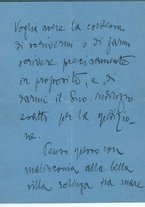 Voglia avere la cortesia
di scrivermi o di farmi
scrivere precisamente
in proposito, e, di
darmi il Suo indirizzo
esatto per la spedizio-
ne.
Penso spesso con
malinconia alla bella
villa solinga tra mare